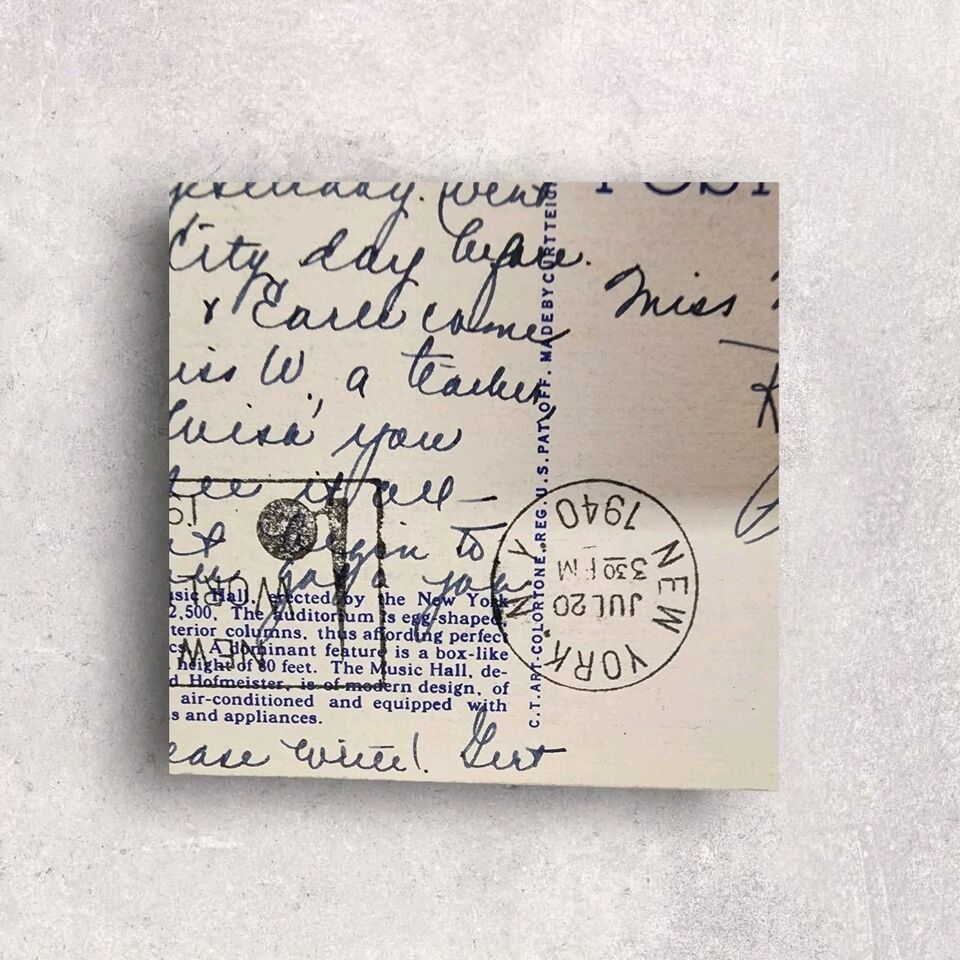 yesterday. Went
City day before.
& Earle come
iss W, a teacher,
wish you
see it all—
it begin to
you
usic Hall, erected by the New York
2,500. The auditorium is egg-shaped,
terior columns, thus affording perfect
cs. A dominant feature is a box-like
height of 80 feet. The Music Hall, de-
d Hofmeister, is of modern design, of
air-conditioned and equipped with
s and appliances.
ease write! Gert
C.T.ART-COLORTONE. REG. U.S. PAT. OFF. MADE BY CURT TEICH
POST
Miss
NEW YORK, N.Y.
JUL 20
3 30 PM
1940
NEW
WORL
TO